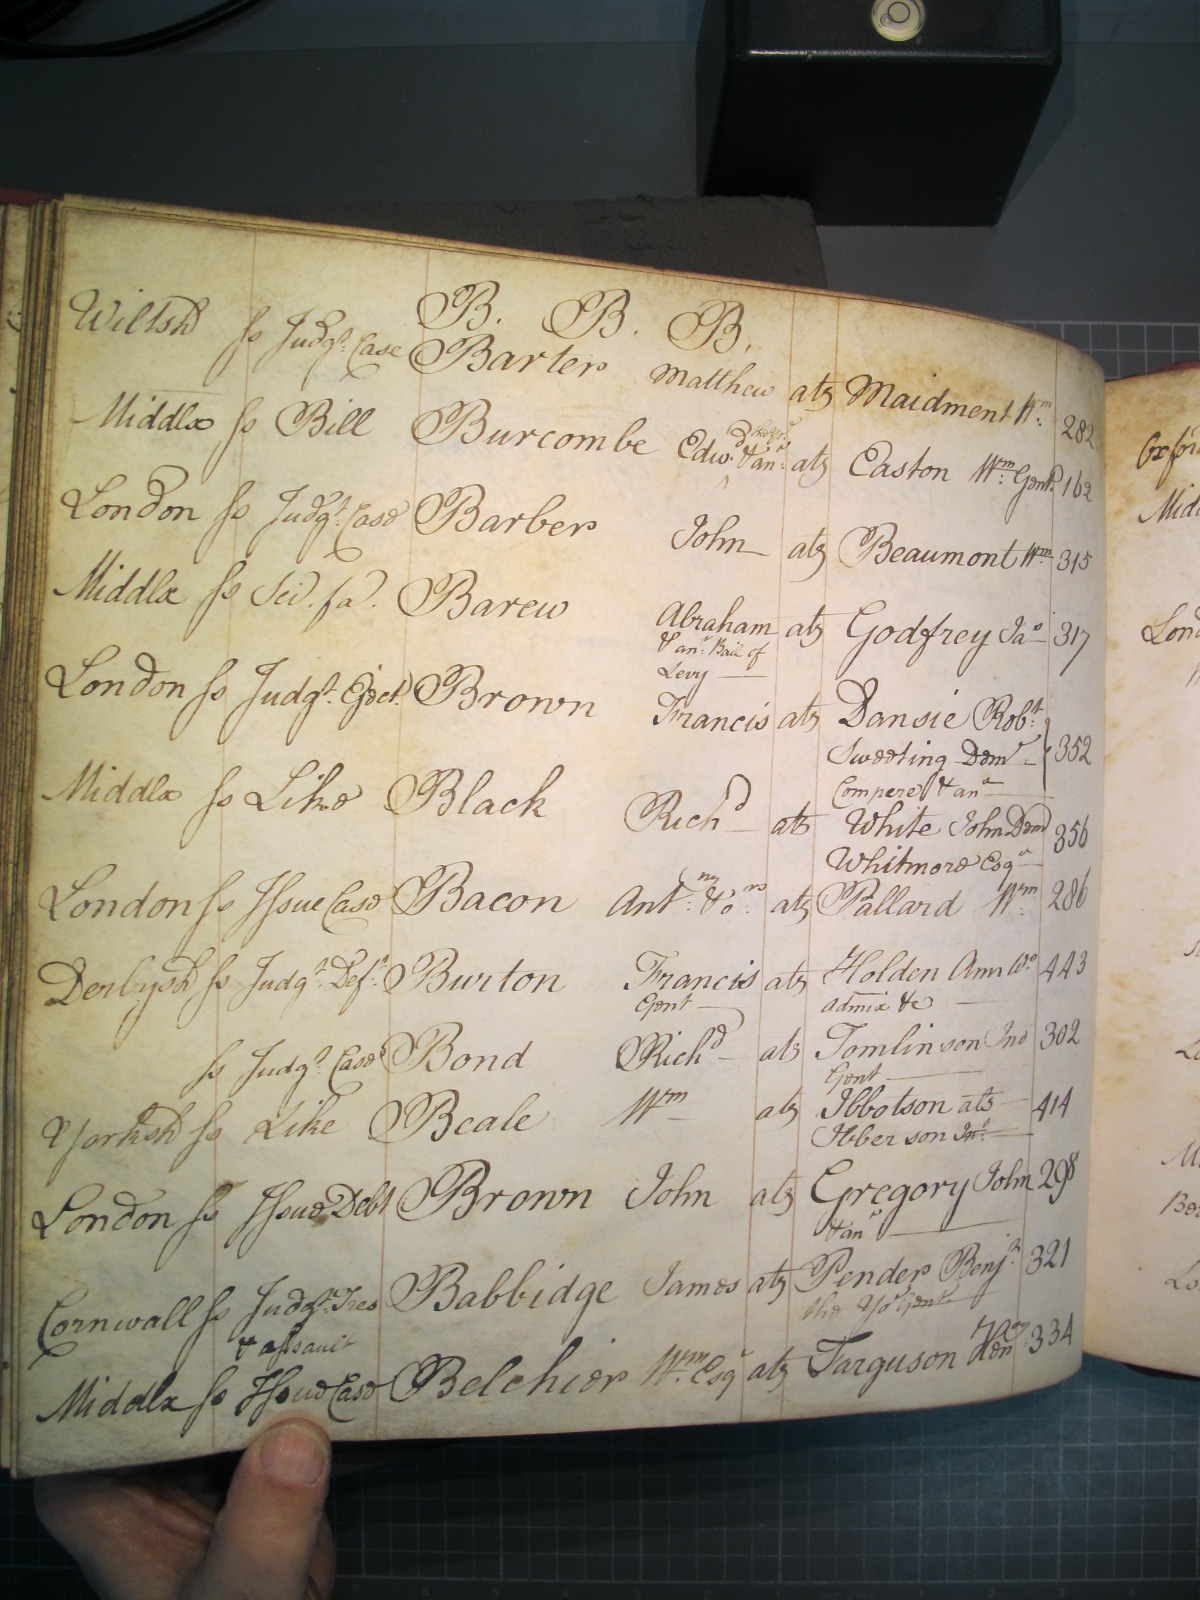 B. B. B.
Wiltsh ss Judgt. Case Barter Matthew ats Maidment Wm. 282
Middlx ss Bill Burcombe Edwd. & anr. ats Easton Wm. Gent. 162
London ss Judgt. Case Barber John ats Beaumont Wm. 315
Middlx ss Sci. fa. Barew Abraham ats Godfrey Jao 317
& anr. Bail of
Levy
London ss Judgt. Eject. Brown Francis ats Dansie Robt. 352
Sweeting Demr.
Compere & anr
Middlx ss Like Black Richd ats White John Dem 356
Whitmore Esqr
London ss Issue Case Bacon Antny. & ors. ats Pallard Wm. 286
Derbysh ss Judgt. Deft. Burton Francis ats Holden Ann Wo. 443
Gent admix &c
ss Judgt. Case Bond Richd ats Tomlinson Jno 302
Gent
Yorksh ss Like Beale Wm ats Ibbotson ats 414
Ibberson Jnr.
London ss Issue Debt Brown John ats Gregory John 298
& anr
Cornwall ss Judgt. Tres Babbidge James ats Pender Benjn. 321
& assault the Yor Gent
Middlx ss Issue Case Belchier Wm. Esqr ats Farguson Hen 334
Oxford
Midd
Lond